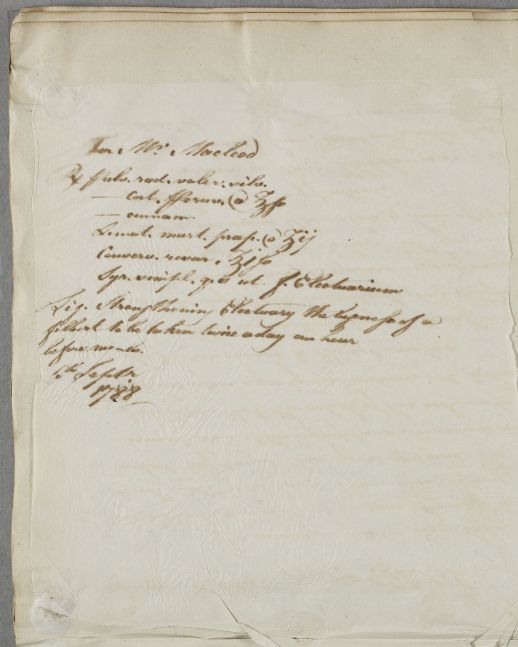 For Mr Macleod
℞ Pulv. rad. valer. silv.
— Cort. Peruv. @ ℥ss
— cinnam.
Limat. mart. ppt. @ ʒij
Conserv. rosar. ℥iss
Syr. simpl. q.s. ut f. Electuarium
Sig. Strengthening Electuary the bigness of a
filbert to be taken twice a day an hour
before meals.
Septr
1788